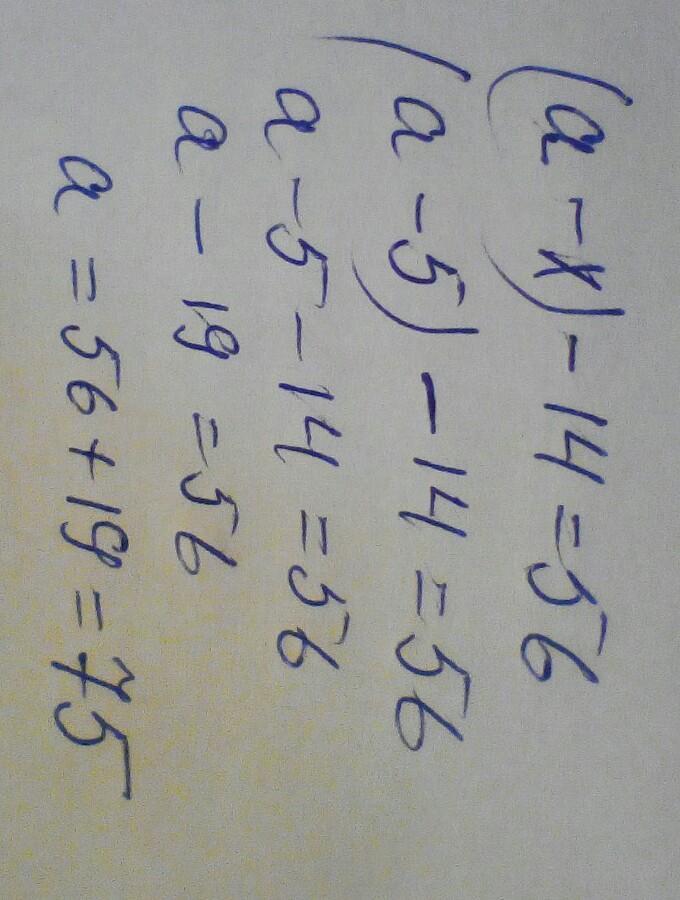 (a - x) - 14 = 56
(a - 5) - 14 = 56
a - 5 - 14 = 56
a - 19 = 56
a = 56 + 19 = 75